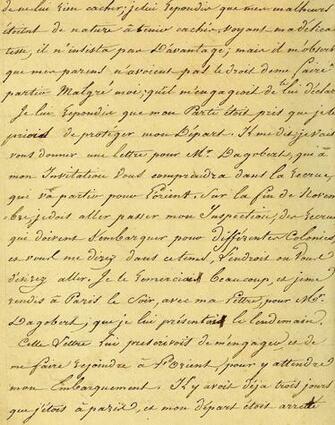 de ne lui rien cacher; je lui repondis que mes malheurs
étoient de nature à tenir cachés, voyant ma délica
tesse, il n'insista pas davantage; mais il m'observa
que mes parens n'avoient pas le droit de me faire
partir malgré moi; qu'il m'engageoit de lui déclar
Je lui repondis que mon Parti étoit pris que je le
priois de protéger mon Départ. Il me dit, je vais
vous donner une lettre pour Mr. Dagobert, qui à
mon Invitation vous comprendra dans la Recrue,
qui va partir pour l'Orient. Sur la fin de Novem
bre, je dois aller passer mon Inspection, des Recrues
qui doivent s'embarquer pour différentes Colonies
et vous me direz dans ce tems, l'endroit où vous
désirez aller. Je le remerciai beaucoup, et je me
rendis à Paris le soir, avec ma lettre, pour Mr.
Dagobert, que je lui présentai le lendemain.
Cette Lettre lui prescrivoit de m'engager et de
me faire rejoindre à l'Orient, pour y attendre
mon Embarquement. Il y avoit déja trois jours
que j'étois à Paris, et mon départ étoit arrêté